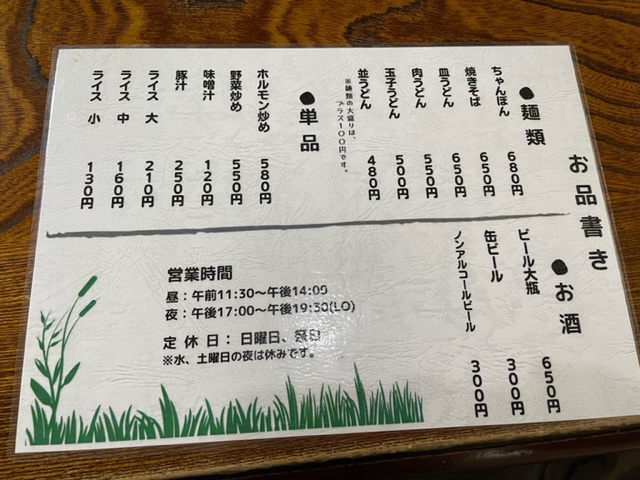 お品書き
●麺類
ちゃんぽん 680円
焼きそば 650円
皿うどん 650円
肉うどん 550円
玉子うどん 500円
並うどん 480円
※麺類の大盛りは、
プラス100円です。
●単品
ホルモン炒め 580円
野菜炒め 550円
味噌汁 120円
豚汁 250円
ライス 大 210円
ライス 中 160円
ライス 小 130円
●お酒
ビール大瓶 650円
缶ビール 300円
ノンアルコールビール 300円
営業時間
昼：午前11:30～午後14:00
夜：午後17:00～午後19:30(LO)
定休日：日曜日、祭日
※水、土曜日の夜は休みです。